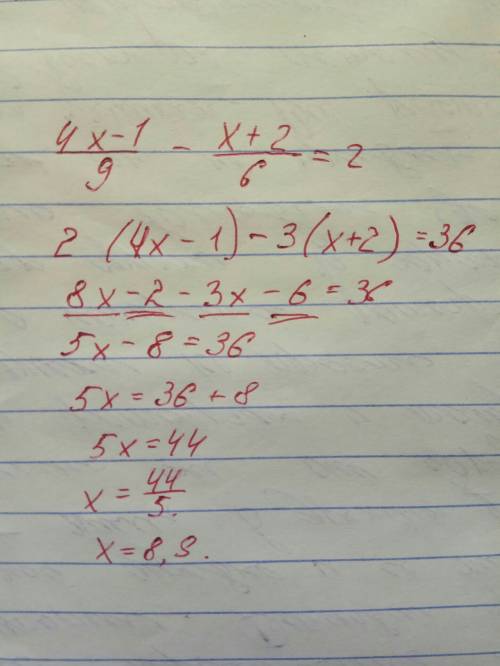 (4x-1)/9 - (x+2)/6 = 2
2 (4x-1) - 3(x+2) = 36
8x - 2 - 3x - 6 = 36
5x - 8 = 36
5x = 36 + 8
5x = 44
x = 44/5.
x = 8,9.